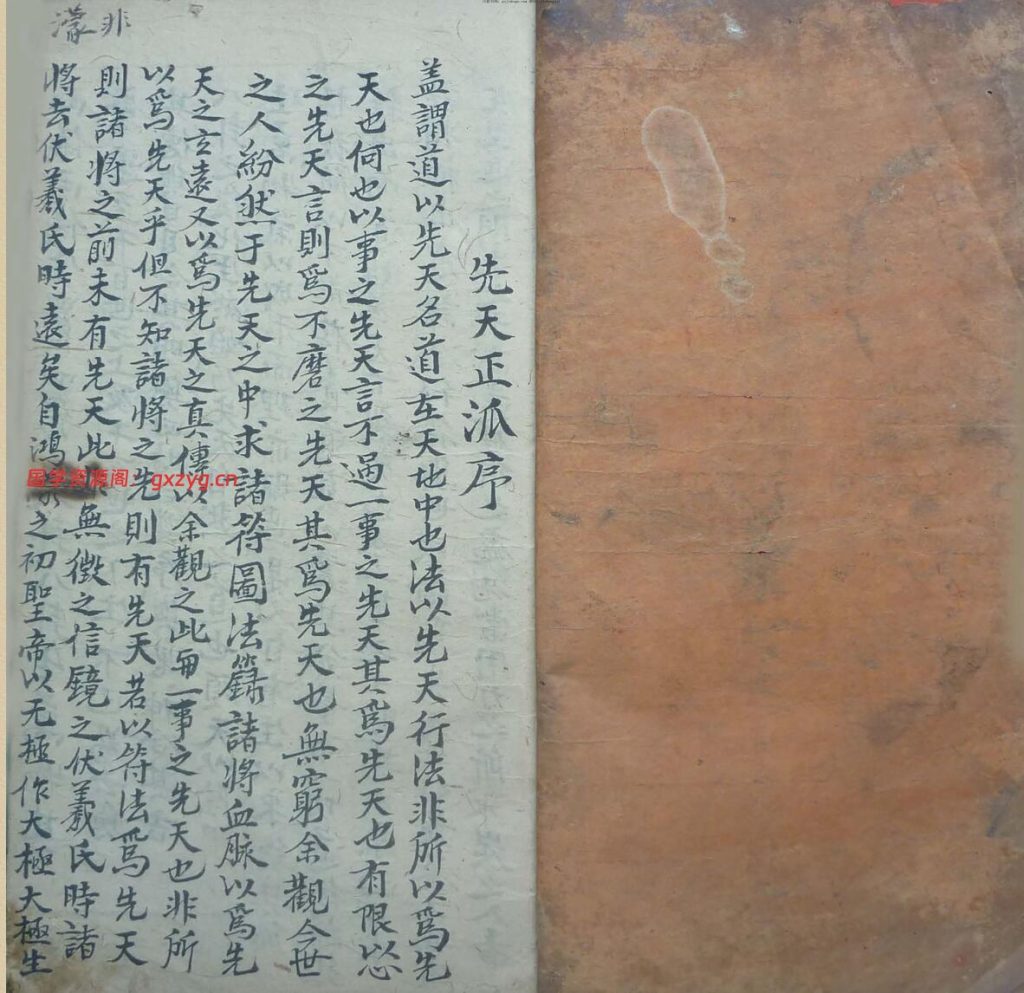 先天正派序
蓋謂道以先天名道在天地中也法以先天行法非所以為先
天也何也以事之先天言不過一事之先天其為先天也有限以心
之先天言則為不磨之先天其為先天也無窮余觀今世
之人紛然于先天之中求諸符圖法籙諸將血脉以為先
天之玄遠又以為先天之真傳以余觀之此毋一事之先天也非所
以為先天乎但不知諸將之先則有先天若以符法為先天
則諸將之前未有先天此無徵之信鏡之伏羲氏時諸
將去伏羲氏時遠矣自鴻之初聖帝以无極作大極大極生
非
濛
国学资源阁 gxzyg.cn